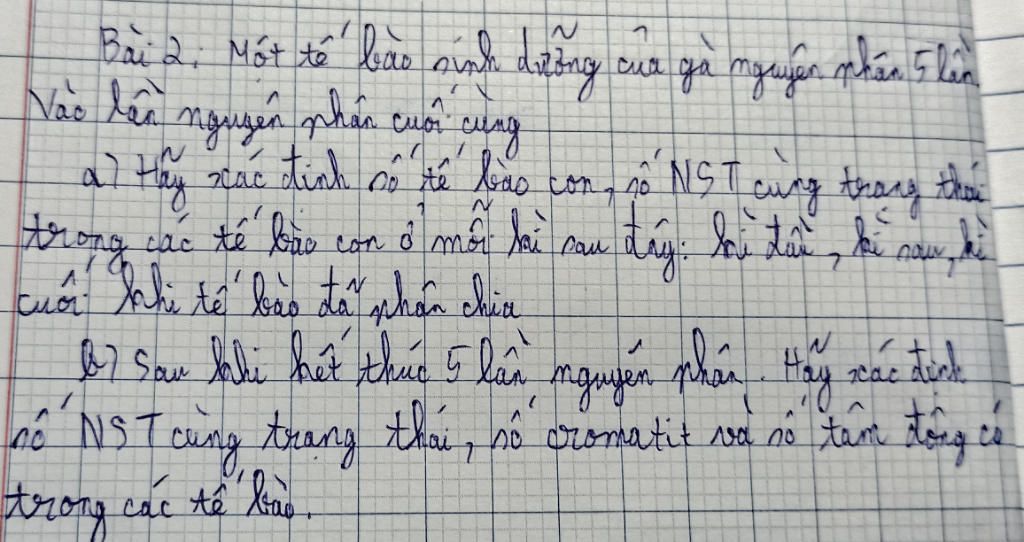 Bài 2: Một tế bào sinh dưỡng của gà nguyên phân 5 lần
Vào lần nguyên phân cuối cùng
a) Hãy xác định số tế bào con, số NST cùng trạng thái
trong các tế bào con ở mỗi kì sau đây: kì đầu, kì sau, kì
cuối khi tế bào đã phân chia
b) Sau khi kết thúc 5 lần nguyên phân. Hãy xác định
số NST cùng trạng thái, số cromatit và số tâm động có
trong các tế bào.